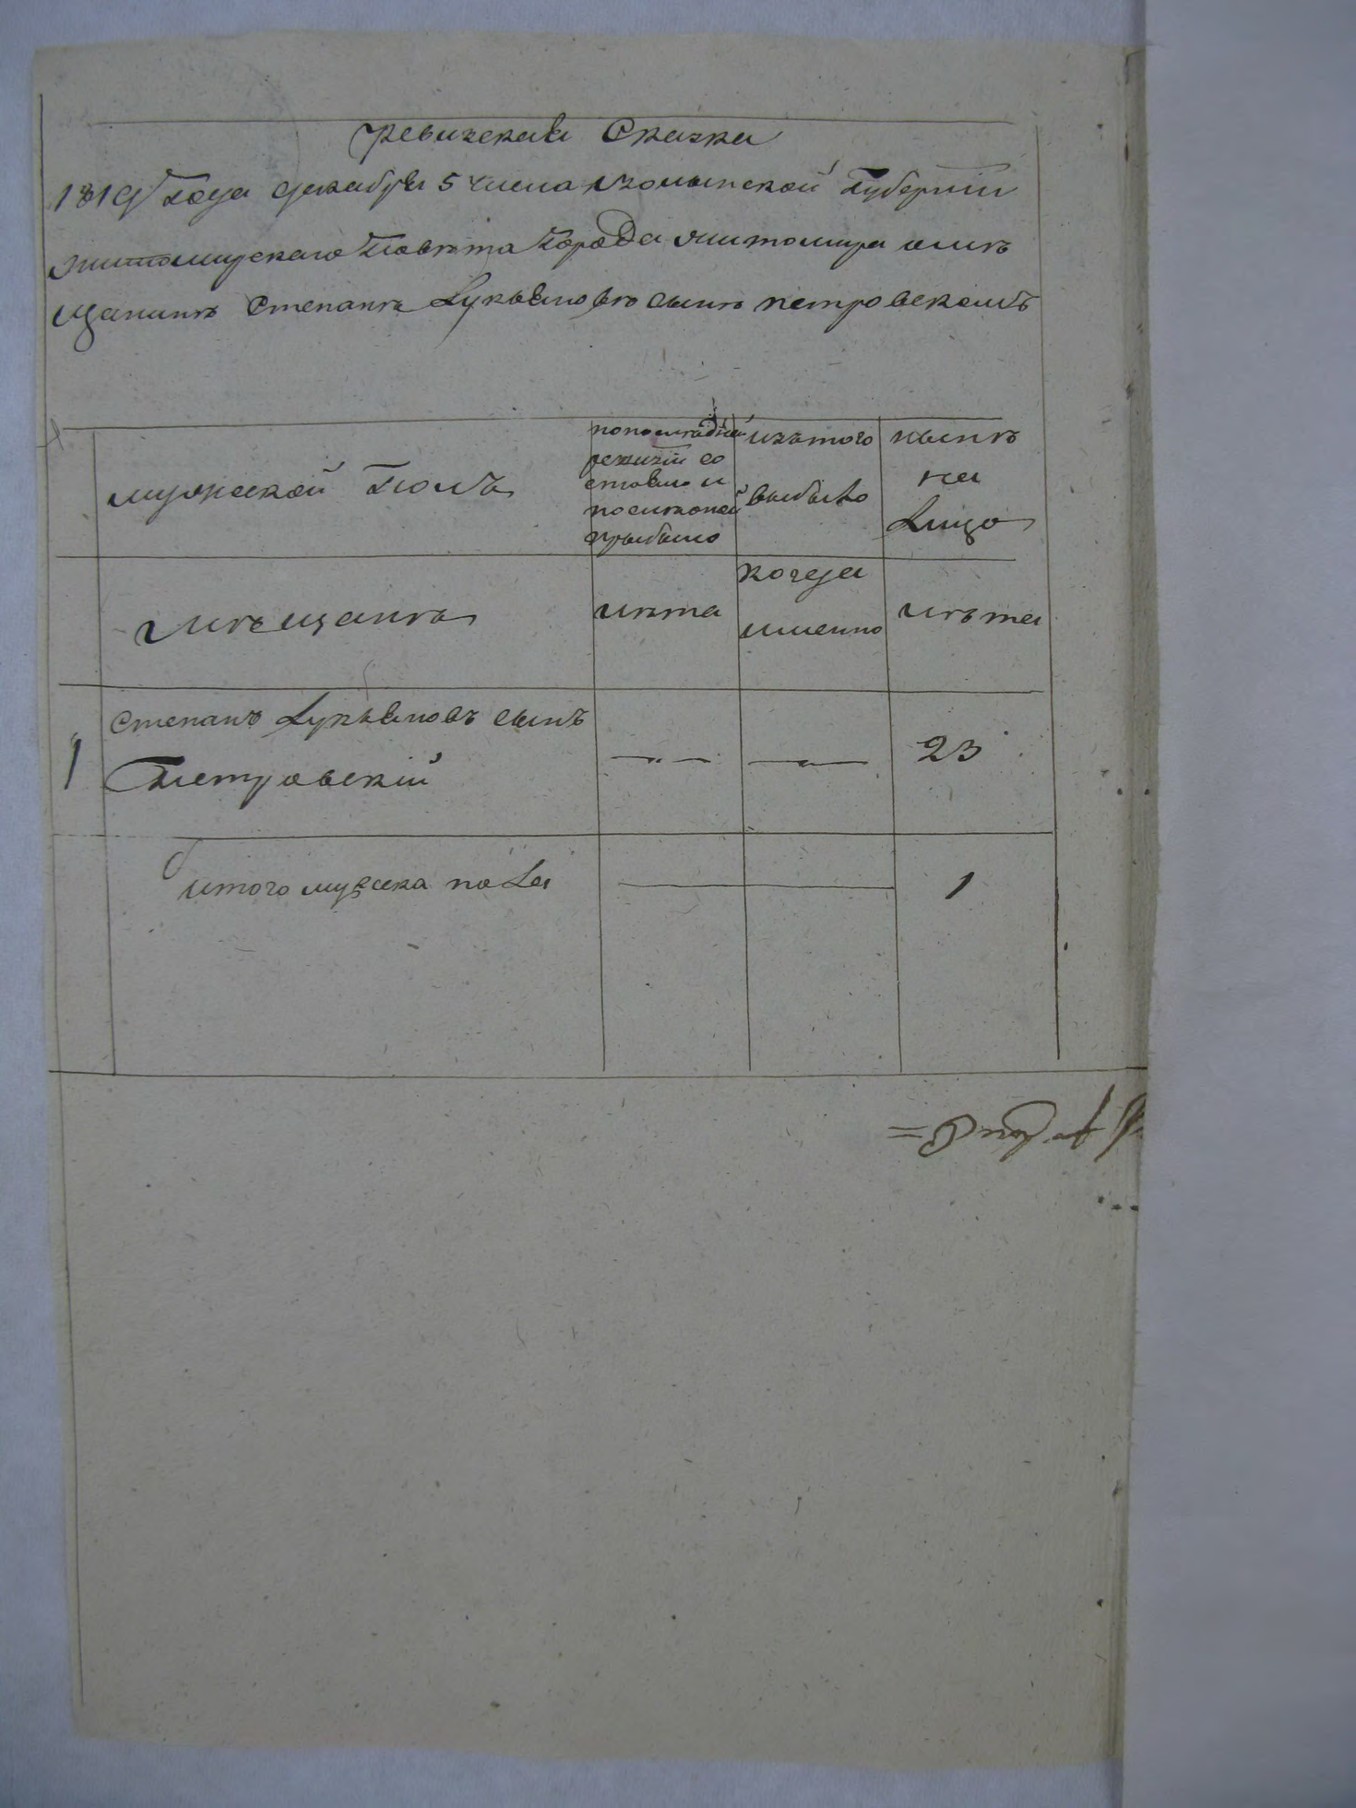 Ревизская Сказка
1819 Года Декабря 5 числа Волынской Губернии
Житомирскаго Повета Города Житомира оме
щанине Степане Лукьянове сыне Петровскомъ
мужеской Полъ
по последней
ревизіи со
стояло и
после оной
прибыло
изътого
выбыло
ныне
на
Лицо
мещане
лета
когда
именно
лета
1
Степанъ Лукьяновъ сынъ
Петровскій
23
итого мужска пола
1